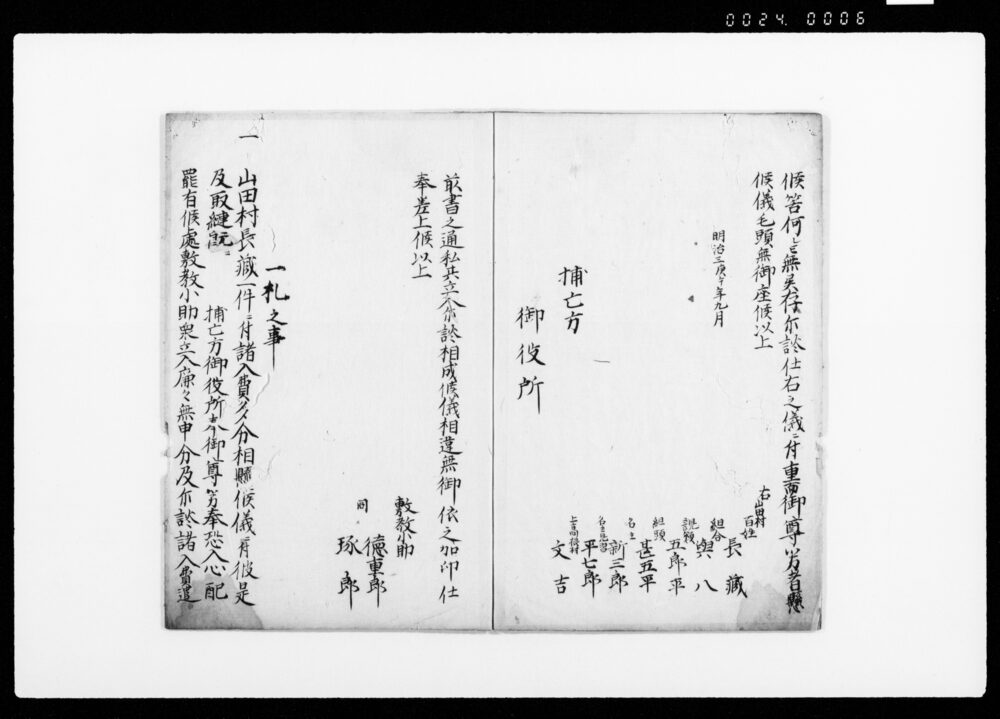 0024. 0006
候筈何ニ而も無異存示談仕右之儀ニ付重而御尊労相懸
候儀毛頭無御座候以上
明治三庚午年九月
右山田村
百姓
長藏
組合
與八
親類
五郎平
組頭
甚五平
名主
新三郎
平七郎
文吉
捕亡方
御役所
前書之通私共立入示談相成候儀相違無御依之加印仕
奉差上候以上
敷教小助
徳車郎
同
琢郎
一札之事
一
山田村長藏一件ニ付諸入費多分相懸候儀ニ付彼是
及取縺
捕亡方御役所奉御尊労奉恐入心配
罷有候處敷教小助衆立入廉々無申分及示談諸入費